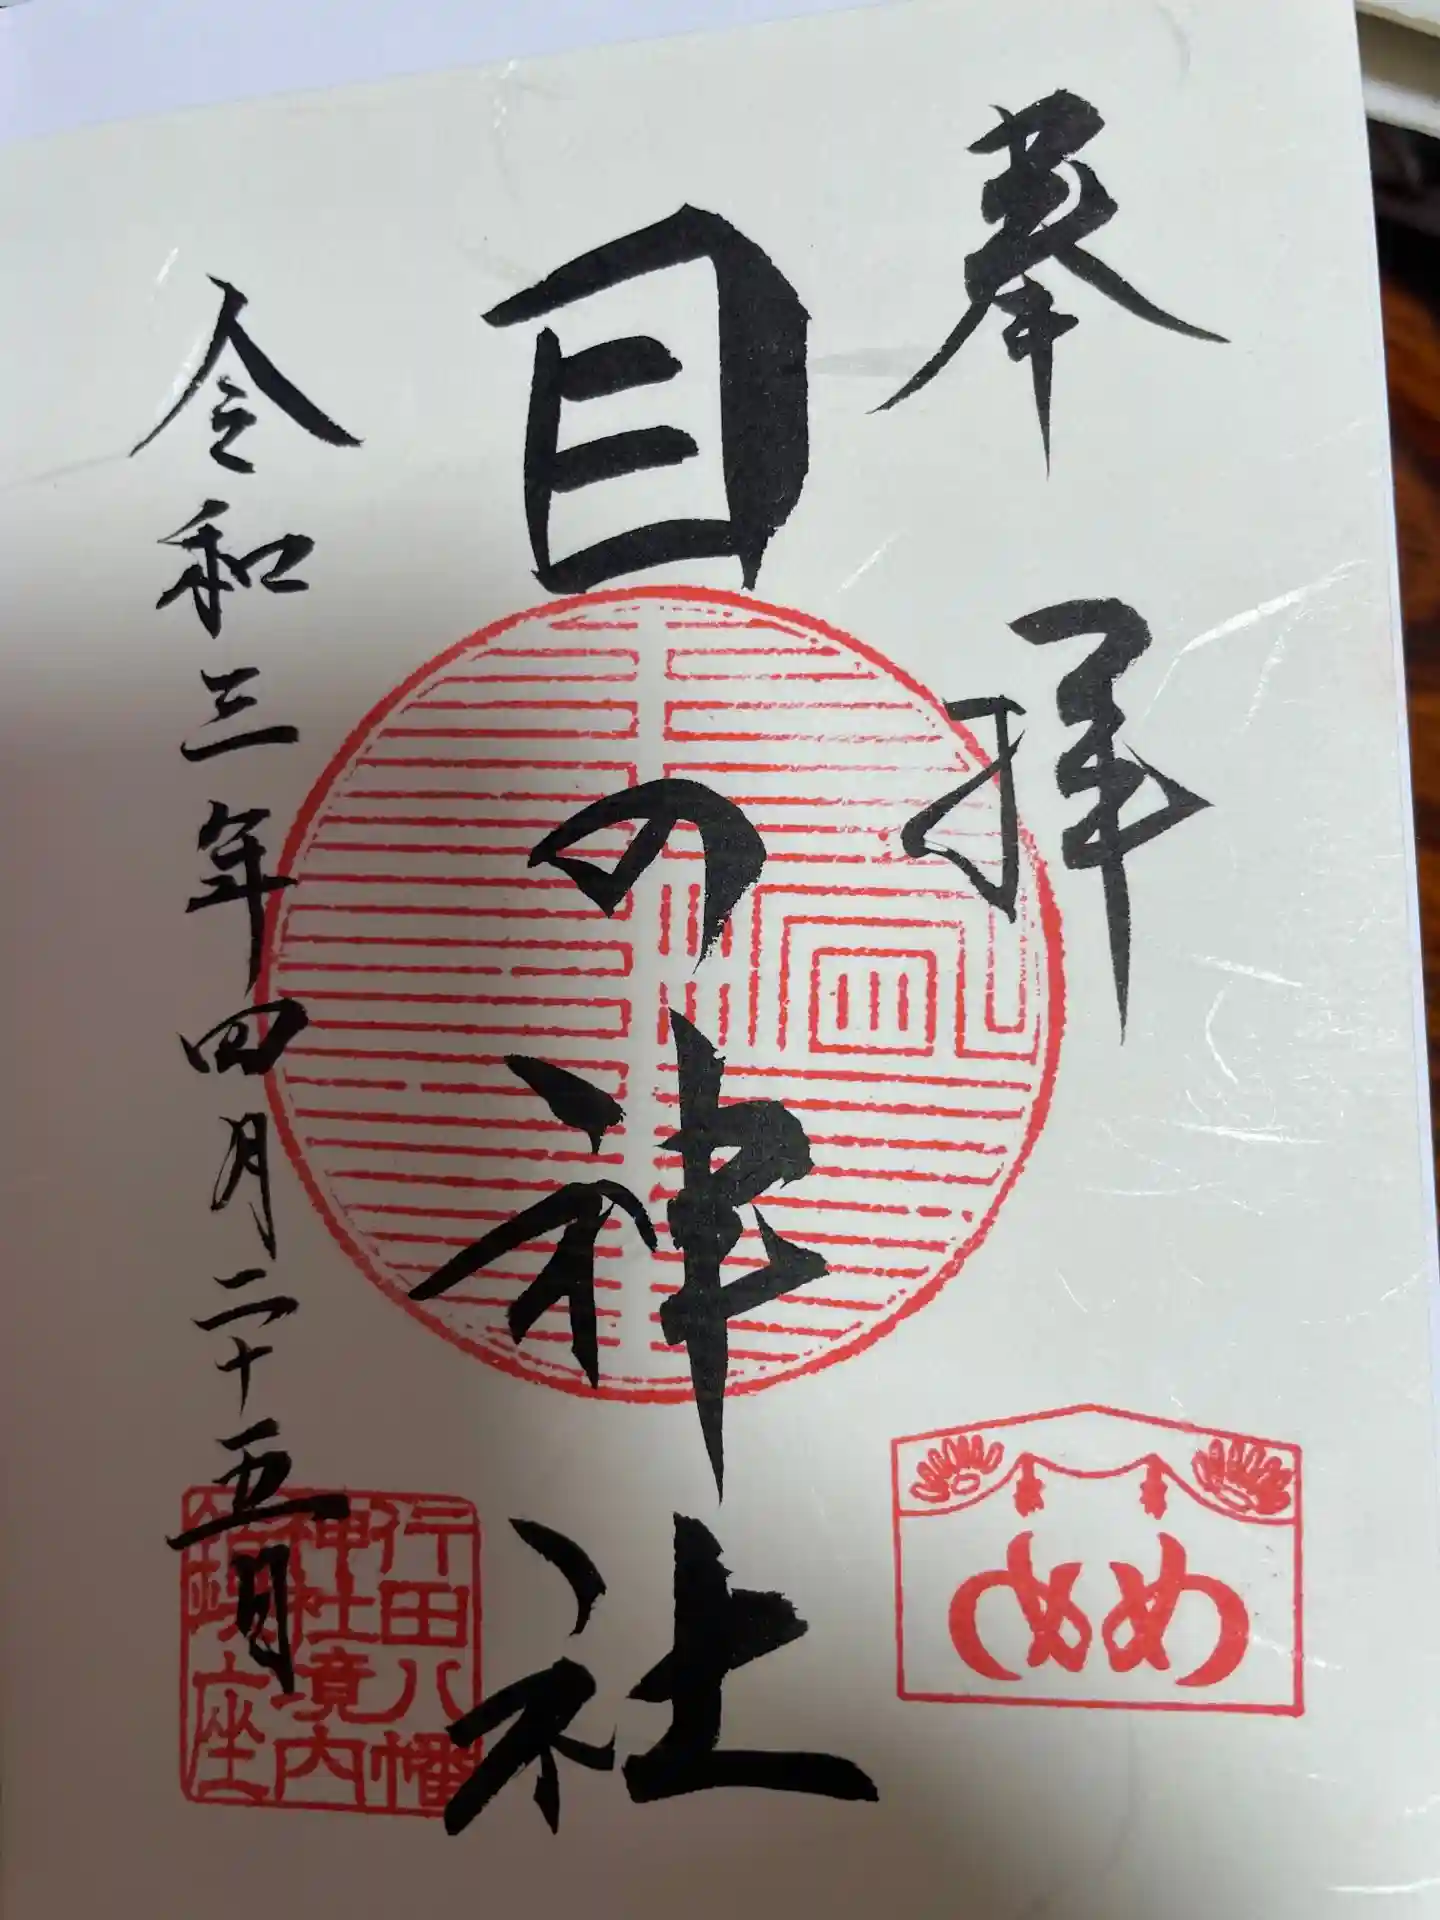 奉拝
目の神社
令和三年四月二十五日
めめ
行田八幡
神社境内
鎮座